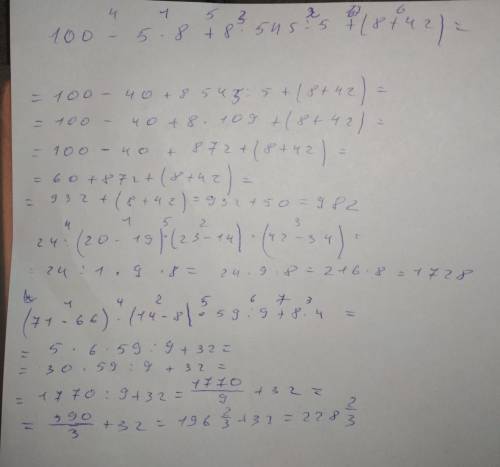 4 1 5 3 2 6
100 - 5 · 8 + 8 · 545 : 5 + (8 + 42) =
= 100 - 40 + 8 545 : 5 + (8 + 42) =
= 100 - 40 + 8 · 109 + (8 + 42) =
= 100 - 40 + 872 + (8 + 42) =
= 60 + 872 + (8 + 42) =
= 932 + (8 + 42) = 932 + 50 = 982
4 1 5 2 3
24 : (20 - 19) · (23 - 14) · (42 - 34) =
= 24 : 1 · 9 · 8 = 24 · 9 · 8 = 216 · 8 = 1728
1 4 2 5 6 7 3
(71 - 66) · (14 - 8) · 59 : 9 + 8 · 4 =
= 5 · 6 · 59 : 9 + 32 =
= 30 · 59 : 9 + 32 =
= 1770 : 9 + 32 = 1770/9 + 32 =
= 590/3 + 32 = 196 2/3 + 32 = 228 2/3